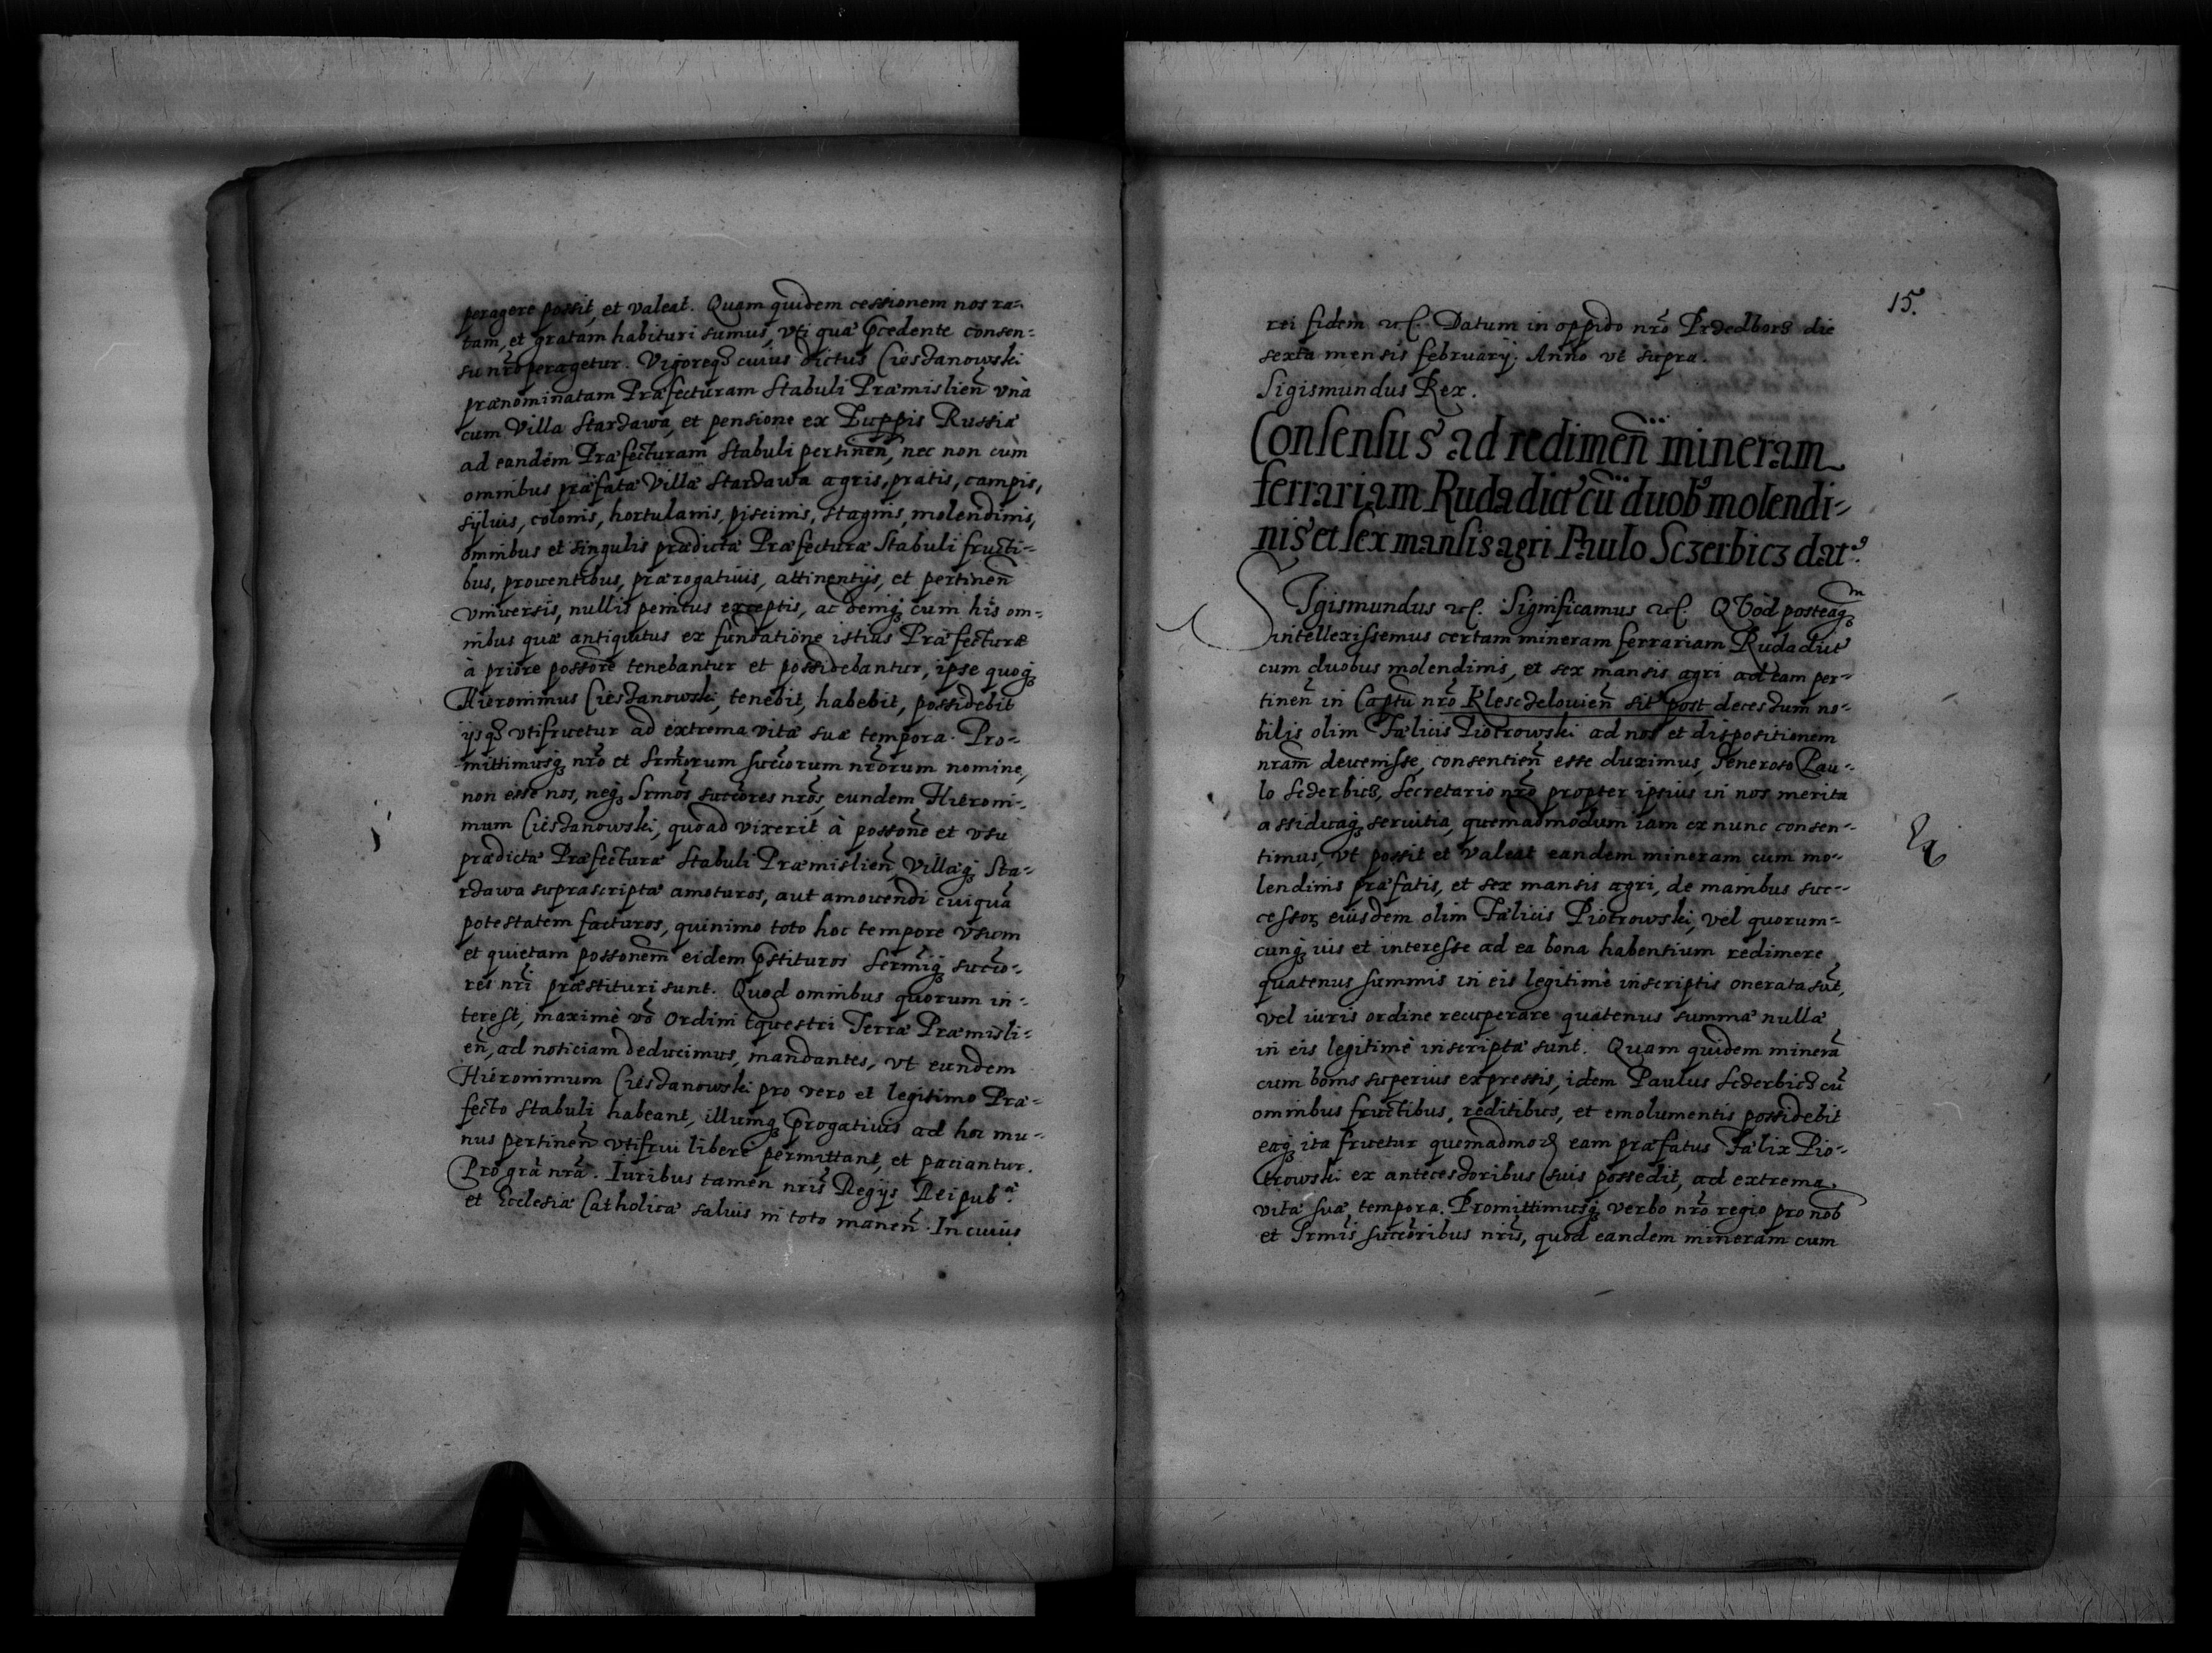 peragere possit, et valeat. Quam quidem cessionem nos ra-
tam, et gratam habituri sumus, vti quæ p̃cedente consen-
su nr̃o peragetur. Vigoreqꝫ cuius dictus Ciesƶanowski
prænominatam Præfecturam Stabuli Præmislien̄ vnà
cum Villa Starƶawa, et pensione ex Zuppis Russiæ
ad eandem Præfecturam Stabuli pertinen̄, nec non cum
omnibus præfatæ Villæ Starƶawa agris, pratis, campis,
syluis, colonis, hortulanis, piscinis, stagnis, molendinis,
omnibus et singulis prædictæ Præfecturæ Stabuli fructi-
bus, prouentibus, prærogatiuis, attinentijs, et pertinen̄
vniuersis, nullis penitus exceptis, ac deniqꝫ cum his om-
nibus quæ antiquitus ex fundatione istius Præfecturæ
à priore possōre tenebantur et possidebantur, ipse quoqꝫ
Hieronimus Ciesƶanowski, tenebit, habebit, possidebit
ijsqꝫ vtifruetur ad extrema vitæ suæ tempora. Pro-
mittimusqꝫ nr̃o et Srm̃orum succ̃orum nr̃orum nomine,
non esse nos, neqꝫ Srm̃os succ̃ores nr̃os, eundem Hieroni-
mum Ciesƶanowski, quoad vixerit à possōne et vsu
prædictæ Præfecturæ Stabuli Præmislien̄, Villæqꝫ Sta-
rƶawa suprascriptæ amoturos, aut amouendi cuiquā
potestatem facturos, quinimo toto hoc tempore vsum
et quietam possōnem eidem p̃stituros Serm̃iqꝫ succ̃o-
res nr̃i præstituri sunt. Quod omnibus quorum in-
terest, maximè vō Ordini Equestri Terræ Præmisli-
en̄, ad noticiam deducimus, mandantes, vt eundem
Hieronimum Ciesƶanowski pro vero et legitimo Præ-
fecto Stabuli habeant, illumqꝫ p̃rogatiuis ad hoc mu-
nus pertinen̄ vtifrui liberè permittant, et paciantur.
Pro grā nr̃a. Iuribus tamen nr̃is Regijs Reipub.æ
et Ecclesiæ Catholicæ saluis in toto manen̄. In cuius
15.
rei fidem etc. Datum in oppido nr̃o Prƶedborƶ die
sexta mensis february. Anno vt supra.
Sigismundus Rex.
Consensus ad redimen̄ mineram
ferrariam Ruda dict' cū duobꝰ molendi-
nis et sex mansis agri Paulo Sczerbicz datꝰ.
SIgismundus etc. Significamus etc. QVod posteaqꝫm
intellexissemus certam mineram ferrariam Ruda dict'
cum duobus molendinis, et sex mansis agri ad eam per-
tinen̄ in Captū nr̃o Klescƶelouien̄ sit' post decessum no-
bilis olim Fælicis Piotrowski ad nos et dispositionem
nr̃am deuenisse, consentien̄ esse duximus, Generoso Pau-
lo Scƶerbicƶ, Secretario nr̃o propter ipsius in nos merita
assiduaqꝫ seruitia, quemadmodum iam ex nunc consen-
timus, vt possit et valeat eandem mineram cum mo-
lendinis præfatis, et sex mansis agri, de manibus suc-
cessoꝝ eiusdem olim Fælicis Piotrowski, vel quorum-
cunqꝫ ius et interesse ad ea bona habentium redimere
quatenus summis in eis legitimè inscriptis onerata sūt,
vel iuris ordine recuperare quatenus summæ nullæ
in eis legitimè inscriptæ sunt. Quam quidem minerā
cum bonis superius expressis, idem Paulus Scƶerbicƶ cū
omnibus fructibus, reditibus, et emolumentis possidebit
eaqꝫ ita fruetur quemadmodꝫ eam præfatus Fælix Pio-
trowski ex antecessoribus suis possedit, ad extrema
vitæ suæ, tempora. Promittimusqꝫ verbo nr̃o regio pro nob̄
et Srm̃is succ̃oribus nr̃is, quod eandem mineram cum